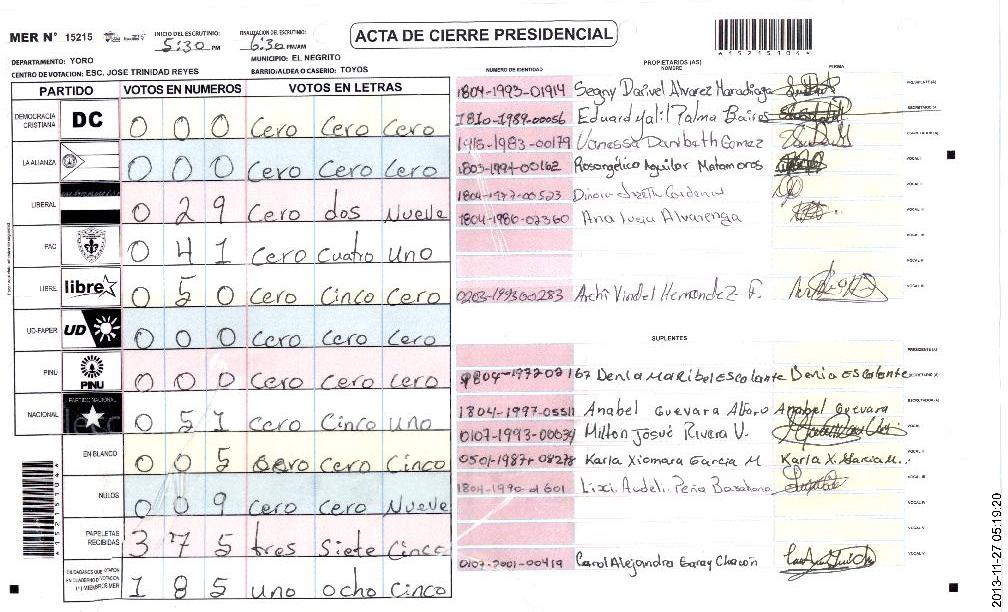 MER N° 15215 INICIO DEL ESCRUTINIO: 5:30 PM FINALIZACION DEL ESCRUTINIO: 6:30 PM/AM
ACTA DE CIERRE PRESIDENCIAL
15215104
DEPARTAMENTO: YORO MUNICIPIO: EL NEGRITO
CENTRO DE VOTACION: ESC. JOSE TRINIDAD REYES BARRIO/ALDEA O CASERIO: TOYOS
PARTIDO VOTOS EN NUMEROS VOTOS EN LETRAS
DEMOCRACIA CRISTIANA DC 0 0 0 Cero Cero Cero
LA ALIANZA 0 0 0 Cero Cero Cero
LIBERAL 0 29 Cero dos Nueve
PAC 0 4 1 Cero Cuatro Uno
LIBRE libre 0 5 0 Cero Cinco Cero
UD-FAPER UD 0 0 0 Cero Cero Cero
PINU PINU 0 0 0 Cero Cero Cero
NACIONAL PARTIDO NACIONAL 0 5 1 Cero Cinco Uno
EN BLANCO 0 0 5 Cero Cero Cinco
NULOS 0 0 9 Cero Cero Nueve
PAPELETAS RECIBIDAS 3 7 5 tres Siete Cinco
CIUDADANOS QUE VOTARON EN CUADERNO DE VOTACION (+) MIEMBROS MER 1 8 5 uno ocho Cinco
NUMERO DE IDENTIDAD PROPIETARIOS (AS) NOMBRE FIRMA
1804-1993-01914 Segny Daniel Alvarez Maradiaga PRESIDENTE (A)
1810-1989-00056 Eduard Yalil Palma Baires SECRETARIO (A)
1415-1983-00179 Vanessa Danibeth Gomez ESCRUTADOR (A)
1803-1994-00162 Rosangélica Aguilar Matamoros VOCAL I
1804-1977-00523 VOCAL II
1804-1980-02360 Ana Lucia Alvarenga VOCAL III
VOCAL IV
VOCAL V
0203-199300283 Archi Vindel Hernandez F. VOCAL VI
SUPLENTES
PRESIDENTE (A)
1804-197702167 Denia Maribel Escalante Denia Escalante SECRETARIO (A)
1804-1997-05511 Anabel Guevara Alfaro Anabel Guevara ESCRUTADOR (A)
0107-1993-00034 Milton Josué Rivera V. VOCAL I
0501-1987-08278 Karla Xiomara Garcia M Karla X. Garcia M.
1804-1990-01601 VOCAL III
VOCAL IV
VOCAL V
0107-2001-00419 Carol Alejandra Garay Chacón VOCAL VI
2013-11-27 05:19:20